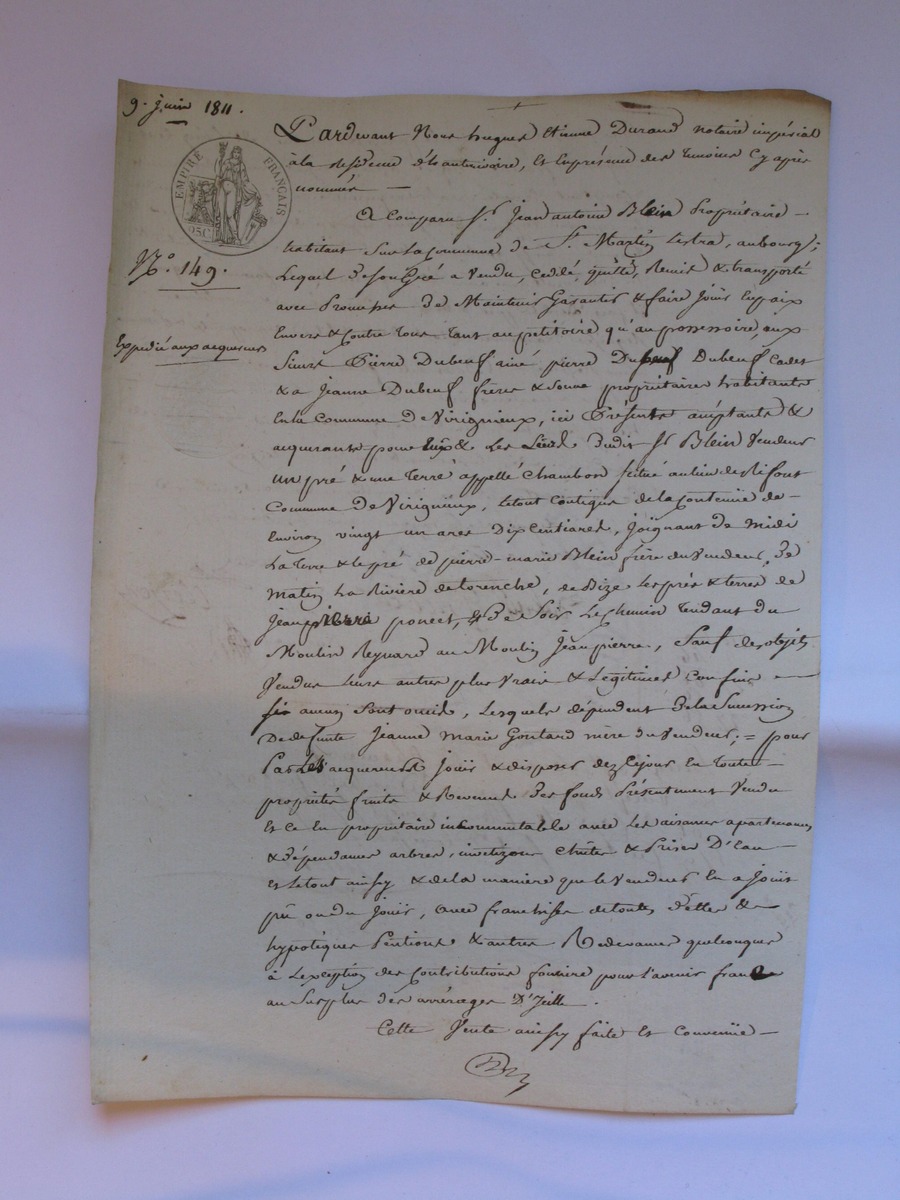 9. juin 1811.
EMPIRE FRANÇAIS
95C
N.° 149.
Expedié aux acquereurs
Pardevant Nous hugues Etienne Durand notaire impérial
à la résidence d'&antérivoire, et en présence des temoins cy après
nommés —
A Comparu S.r Jean antoine Blein Propriétaire —
habitant sur la commune de S.t Martin Lestra, au bourg;
Lequel de son gré a vendu, ceddé, quitté, Remis & transporté
avec Promesse de Maintenir Garantir & faire Jouir en paix
Envers & Contre tous tant au petitoire qu'au possessoire, aux
Sieurs Pierre Dubeuf ainé pierre Dubeuf Cadet
& a Jeanne Dubeuf frères & Soeur propriétaires habitants
En la Commune de Virigneux, ici Présents acceptants &
acquerants pour Eux & Les Leurs dudit S.r Blein Vendeur
un pré & une Terre appellé Chambon situé au lieu de
Commune de Virigneux, le tout contigue de la contenue de —
Environ vingt un ares Dix Centiares, Joignant de midi
La Terre & le pré de pierre-marie Blein frère du Vendeur, De
matin La Rivière de torenche, de Bize Les prés & terres de
Jean poncet, & De Soir Le Chemin Tendant du
Moulin Reynard au Moulin Jean pierre, Sauf des objets
Vendus leurs autres plus vrais & Légitimes Confins —
Si aucuns sont omis, Lesquels dépendent De la Succession
De defunte Jeanne Marie Goutard mère du Vendeur; = pour
Par Les acquereurs Jouir & disposer dez cejour En toute
propriété fruits & Revenus Des fonds Présentement Vendu
Et ce En propriétaire incommutable avec Les aisances apartenances
& dépendances arbres, Chûtes & Prises D'Eau —
Et le tout ainsy & de la manière que le Vendeur En a Joüit
pû ou du Jouïr, avec franchise de toutes Dettes &
hypotèques Pentions & autres Redevances quelconques
à L'exception des Contributions foncière pour l'avenir franc
au Surplus des arrérages D'Icelle.
Cette Vente ainsy faite Et Convenüe —